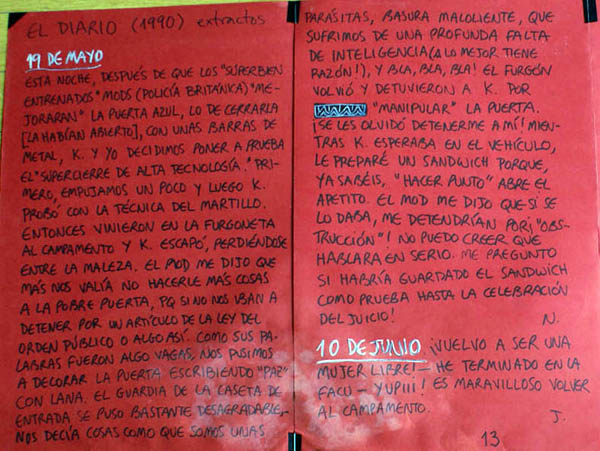 EL DIARIO (1990) extractos
19 DE MAYO
ESTA NOCHE, DESPUÉS DE QUE LOS "SÚPERBIEN
ENTRENADOS" MODS (POLICÍA BRITÁNICA) "ME-
JORARAN" LA PUERTA AZUL, LO DE CERRARLA
[LA HABÍAN ABIERTO], CON UNAS BARRAS DE
METAL, K. Y YO DECIDIMOS PONER A PRUEBA
EL "SUPERCIERRE DE ALTA TECNOLOGÍA." PRI-
MERO, EMPUJAMOS UN POCO Y LUEGO K.
PROBÓ CON LA TÉCNICA DEL MARTILLO.
ENTONCES VINIERON EN LA FURGONETA
AL CAMPAMENTO Y K. ESCAPÓ, PERDIÉNDOSE
ENTRE LA MALEZA. EL MOD ME DIJO QUE
MÁS NOS VALÍA NO HACERLE MÁS COSAS
A LA POBRE PUERTA, PQ SI NO NOS IBAN A
DETENER POR UN ARTÍCULO DE LA LEY DEL
ORDEN PÚBLICO O ALGO ASÍ. COMO SUS PA-
LABRAS FUERON ALGO VAGAS, NOS PUSIMOS
A DECORAR LA PUERTA ESCRIBIENDO "PAZ"
CON LANA. EL GUARDIA DE LA CASETA DE
ENTRADA SE PUSO BASTANTE DESAGRADABLE,
NOS DECÍA COSAS COMO QUE SOMOS UNAS
PARÁSITAS, BASURA MALOLIENTE, QUE
SUFRIMOS DE UNA PROFUNDA FALTA
DE INTELIGENCIA (¡A LO MEJOR TIENE
RAZÓN!), Y BLA, BLA, BLA! EL FURGÓN
VOLVIÓ Y DETUVIERON A K. POR
"MANIPULAR" LA PUERTA.
¡SE LES OLVIDÓ DETENERME A MÍ! MIEN-
TRAS K. ESPERABA EN EL VEHÍCULO,
LE PREPARÉ UN SANDWICH PORQUE,
YA SABÉIS, "HACER PUNTO" ABRE EL
APETITO. EL MOD ME DIJO QUE SI SE
LO DABA, ME DETENDRÍAN POR ¡"OBS-
TRUCCIÓN"! NO PUEDO CREER QUE
HABLARA EN SERIO. ME PREGUNTO
SI HABRÍA GUARDADO EL SANDWICH
COMO PRUEBA HASTA LA CELEBRACIÓN
DEL JUICIO! N.
10 DE JUNIO ¡VUELVO A SER UNA
MUJER LIBRE! – HE TERMINADO EN LA
FACU – YUPIII! ES MARAVILLOSO VOLVER
AL CAMPAMENTO. J.
13